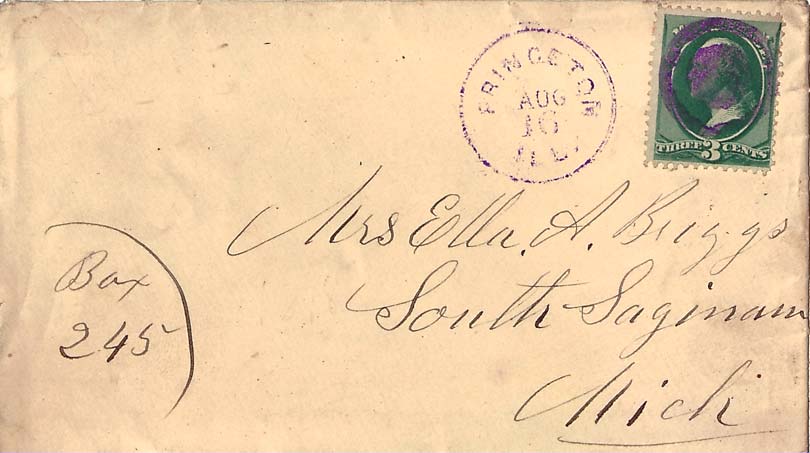 PRINCETON
AUG
16
ILL.
THREE 3 CENTS
Mrs Ella. A. Briggs
South Saginaw
Mich
Box
245